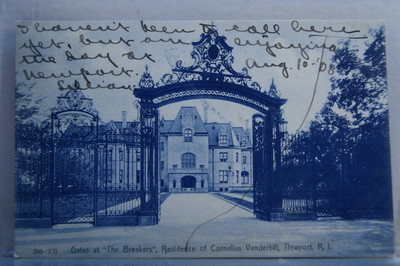 I haven't been to call here
yet, but am enjoying
the day at
Newport. Aug 10-08
Lillian
Gates at "The Breakers", Residence of Cornelius Vanderbilt, Newport, R. I.